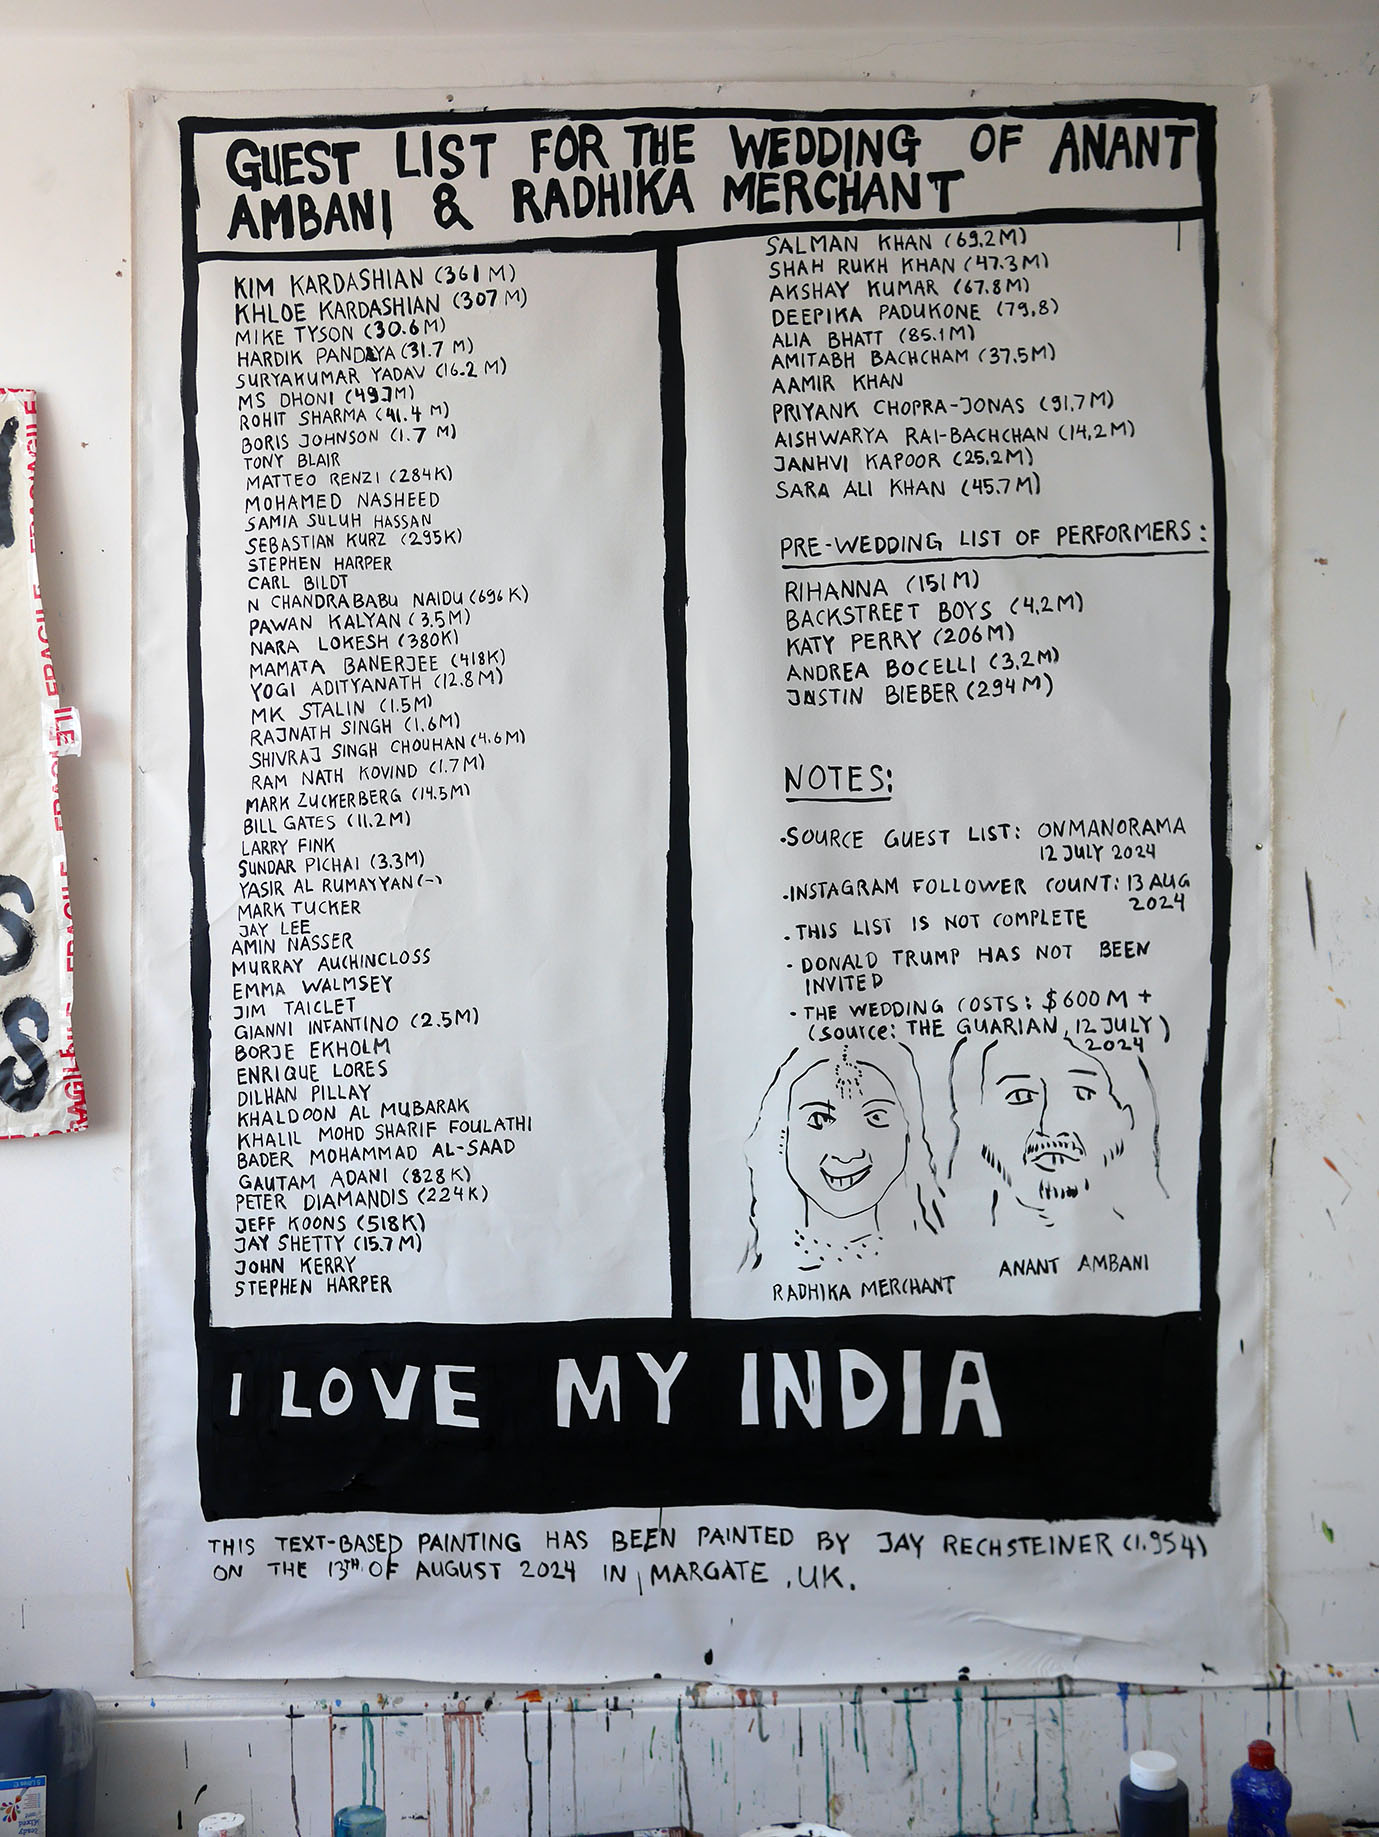 GUEST LIST FOR THE WEDDING OF ANANT
AMBANI & RADHIKA MERCHANT
KIM KARDASHIAN (361 M)
KHLOE KARDASHIAN (307 M)
MIKE TYSON (30.6M)
HARDIK PANDAYA (31.7 M)
SURYAKUMAR YADAV (16.2 M)
MS DHONI (49.7M)
ROHIT SHARMA (41.4 M)
BORIS JOHNSON (1.7 M)
TONY BLAIR
MATTEO RENZI (284K)
MOHAMED NASHEED
SAMIA SULUH HASSAN
SEBASTIAN KURZ (295K)
STEPHEN HARPER
CARL BILDT
N CHANDRABABU NAIDU (696 K)
PAWAN KALYAN (3.5M)
NARA LOKESH (380K)
MAMATA BANERJEE (418K)
YOGI ADITYANATH (12.8 M)
MK STALIN (1.5M)
RAJNATH SINGH (1.6M)
SHIVRAJ SINGH CHOUHAN (4.6M)
RAM NATH KOVIND (1.7M)
MARK ZUCKERBERG (14.5M)
BILL GATES (11.2M)
LARRY FINK
SUNDAR PICHAI (3.3M)
YASIR AL RUMAYYAN (-)
MARK TUCKER
JAY LEE
AMIN NASSER
MURRAY AUCHINCLOSS
EMMA WALMSEY
JIM TAICLET
GIANNI INFANTINO (2.5M)
BORJE EKHOLM
ENRIQUE LORES
DILHAN PILLAY
KHALDOON AL MUBARAK
KHALIL MOHD SHARIF FOULATHI
BADER MOHAMMAD AL-SAAD
GAUTAM ADANI (828 K)
PETER DIAMANDIS (224K)
JEFF KOONS (518K)
JAY SHETTY (15.7 M)
JOHN KERRY
STEPHEN HARPER
SALMAN KHAN (69,2M)
SHAH RUKH KHAN (47.3M)
AKSHAY KUMAR (67.8M)
DEEPIKA PADUKONE (79,8)
ALIA BHATT (85.1M)
AMITABH BACHCHAM (37.5M)
AAMIR KHAN
PRIYANK CHOPRA-JONAS (91,7M)
AISHWARYA RAI-BACHCHAN (14,2M)
JANHVI KAPOOR (25.2M)
SARA ALI KHAN (45.7M)
PRE-WEDDING LIST OF PERFORMERS:
RIHANNA (151 M)
BACKSTREET BOYS (4,2M)
KATY PERRY (206M)
ANDREA BOCELLI (3,2M)
JUSTIN BIEBER (294M)
NOTES:
·SOURCE GUEST LIST: ONMANORAMA
12 JULY 2024
·INSTAGRAM FOLLOWER COUNT: 13 AUG
2024
·THIS LIST IS NOT COMPLETE
·DONALD TRUMP HAS NOT BEEN
INVITED
·THE WEDDING COSTS: $600M +
(source: THE GUARIAN, 12 JULY)
2024
RADHIKA MERCHANT
ANANT AMBANI
I LOVE MY INDIA
THIS TEXT-BASED PAINTING HAS BEEN PAINTED BY JAY RECHSTEINER (1.954)
ON THE 13TH OF AUGUST 2024 IN MARGATE, UK.
FRAGILE FRAGILE FRAGILE FRAGILE